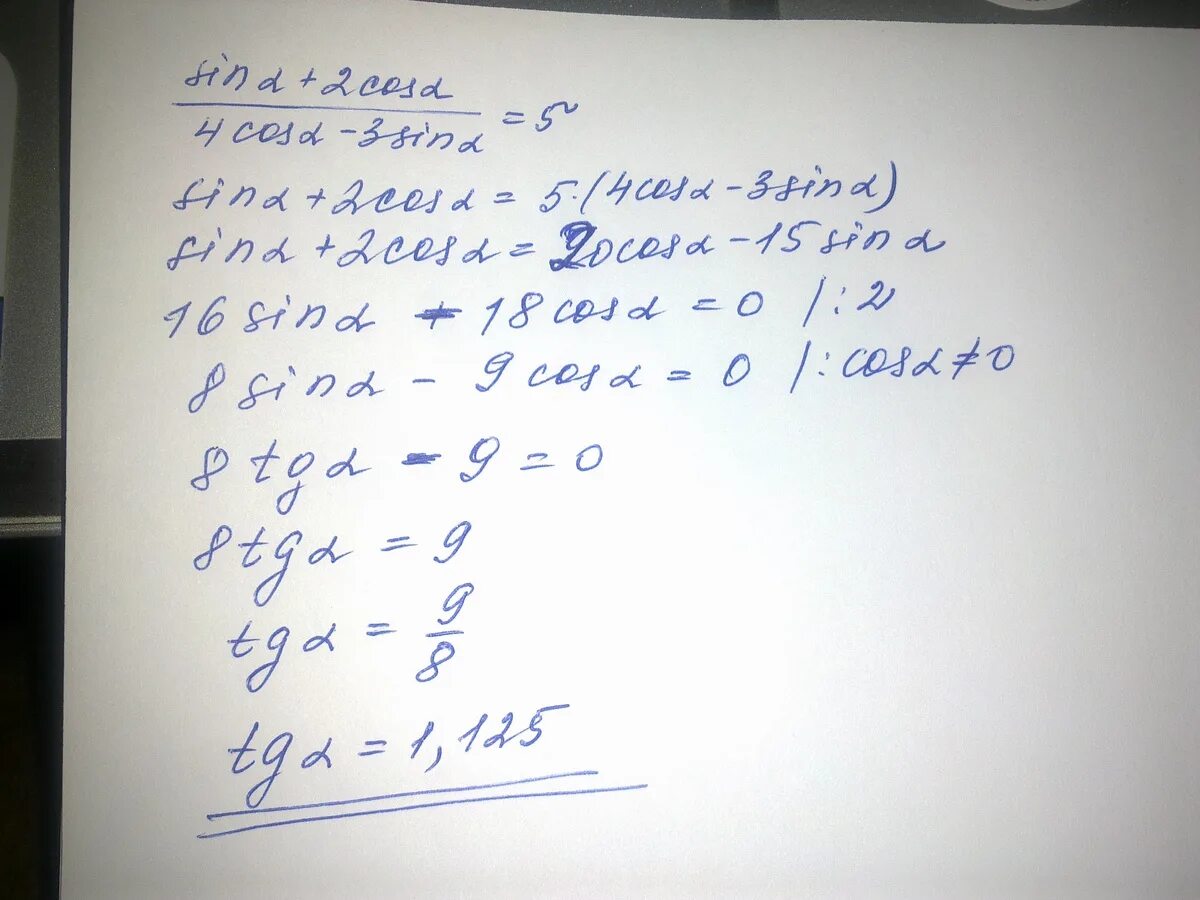 sinα + 2cosα
4cosα - 3sinα = 5
sinα + 2cosα = 5·(4cosα - 3sinα)
sinα + 2cosα = 20cosα - 15sinα
16 sinα - 18cosα = 0 /:2
8 sinα - 9cosα = 0 /:cosα≠0
8 tgα - 9 = 0
8tgα = 9
tgα = 9/8
tgα = 1,125